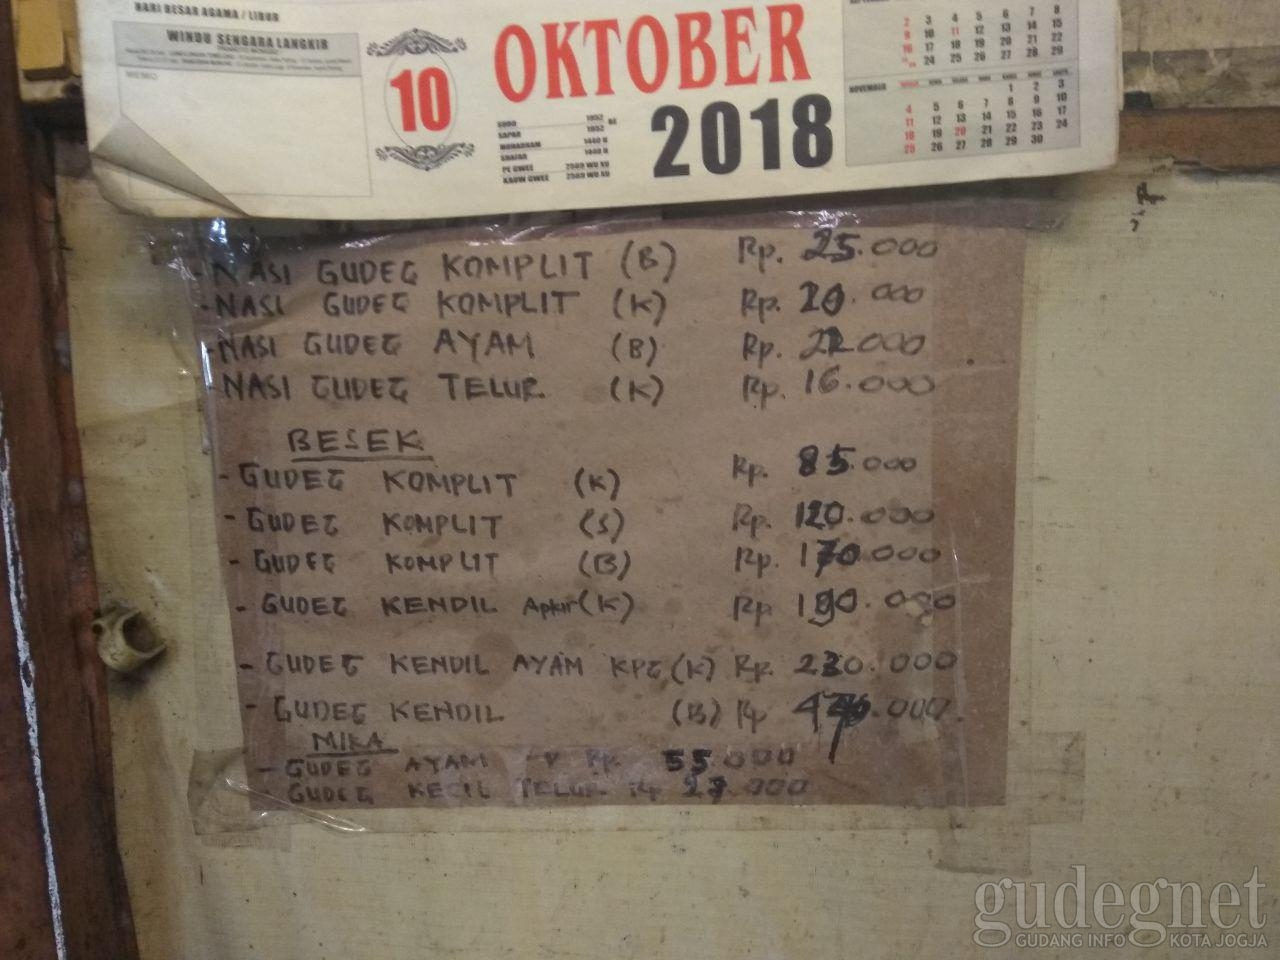 HARI BESAR AGAMA / LIBUR
WINDU SENGARA LANGKIR
MEMO
10
OKTOBER
2018
SURO 1952 BE
SAPAR 1952
MUHARRAM 1440 H
SHAFAR 1440 H
PE GWEE 2569 WU SU
KAUW GWEE 2569 WU SU
2 3 4 5 6 7 8
9 10 11 12 13 14 15
16 17 18 19 20 21 22
24 25 26 27 28 29
NOVEMBER
1 2 3
4 5 6 7 8 9 10
11 12 13 14 15 16 17
18 19 20 21 22 23 24
25 26 27 28 29 30
- NASI GUDEG KOMPLIT (B) Rp. 25.000
- NASI GUDEG KOMPLIT (K) Rp. 20.000
- NASI GUDEG AYAM (B) Rp. 22.000
- NASI GUDEG TELUR (K) Rp. 16.000
BESEK
- GUDEG KOMPLIT (K) Rp. 85.000
- GUDEG KOMPLIT (S) Rp. 120.000
- GUDEG KOMPLIT (B) Rp. 170.000
- GUDEG KENDIL Apkir (K) Rp 190.000
- GUDEG KENDIL AYAM KPG (K) Rp. 230.000
- GUDEG KENDIL (B) Rp
MIKA
- GUDEG AYAM Rp. 55.000
- GUDEG KECIL TELUR Rp 27.000
gudegnet
GUDANG INFO KOTA JOGJA